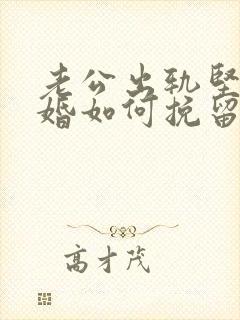 老公出轨坚
婚如何挽留
高才茂